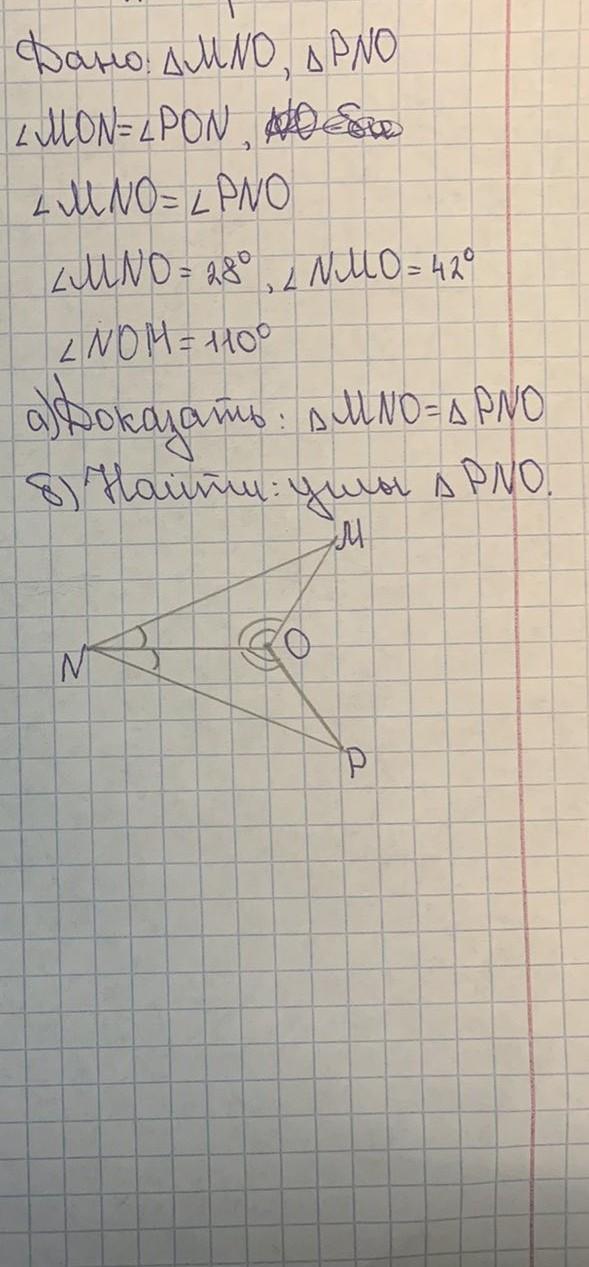 Дано: △MNO, △PNO
∠MON=∠PON,
∠MNO=∠PNO
∠MNO=28°, ∠NMO=42°
∠NOM=110°
а) Доказать: △MNO=△PNO
б) Найти: углы △PNO.
M
N
O
P